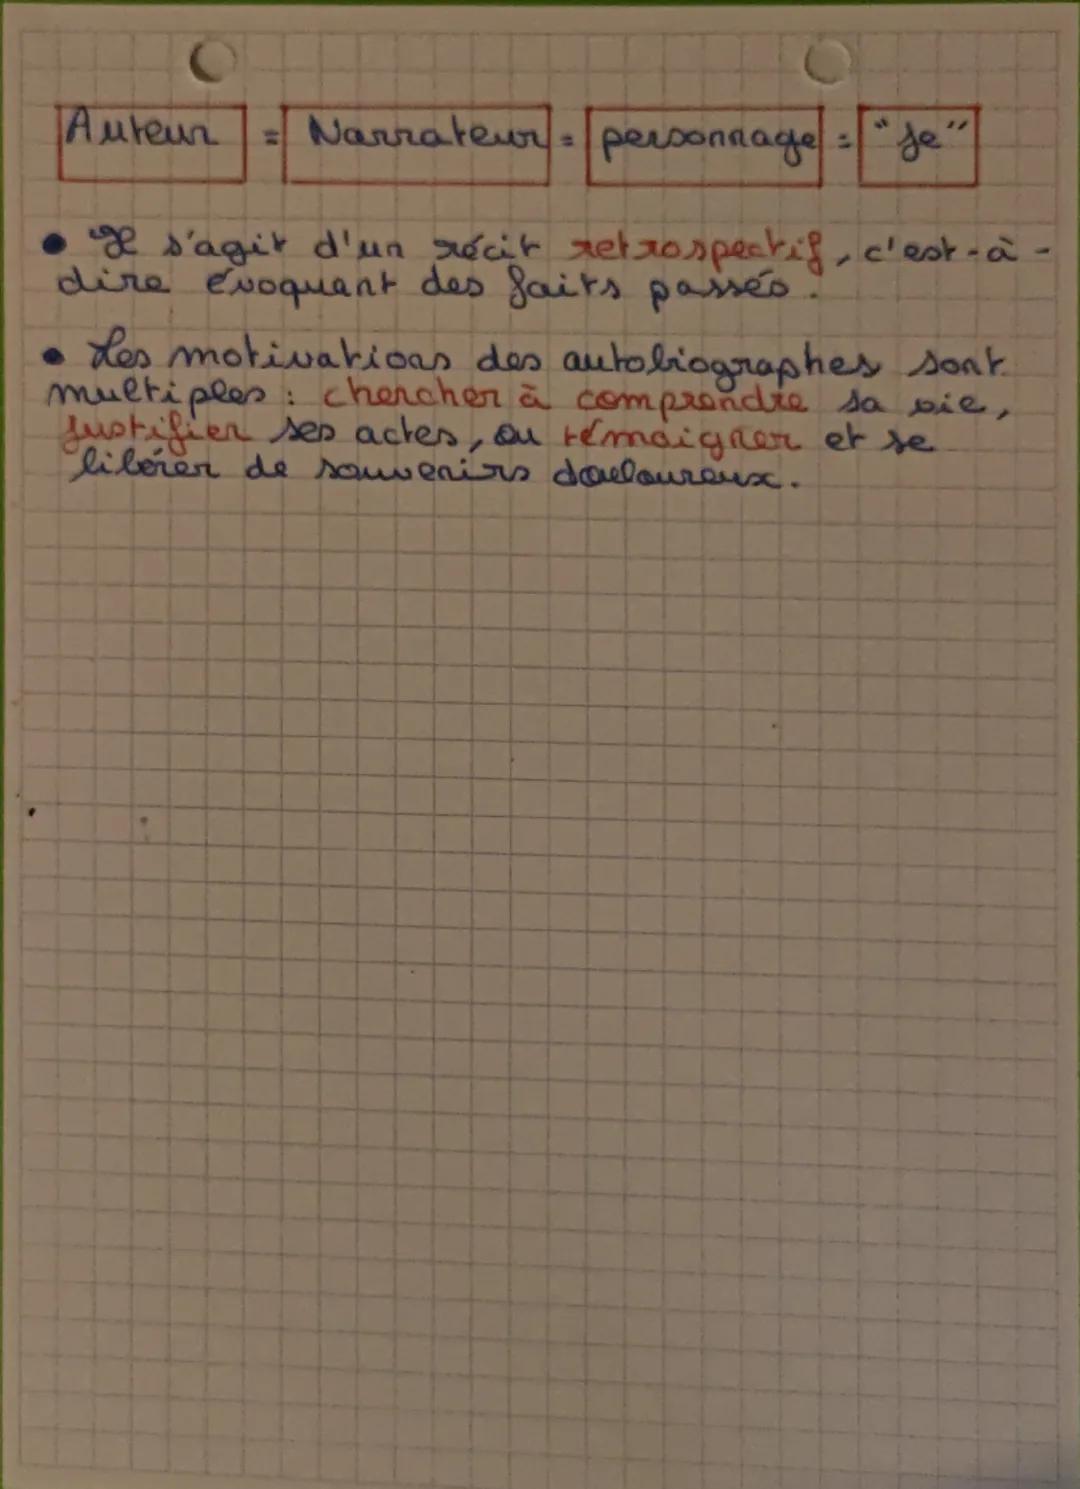 Auteur = Narrateur = personnage = "je"
• Il s'agit d'un récit retrospectif, c'est-à-
dire évoquant des faits passés.
• Les motivations des autobiographes sont
multiples : chercher à comprendre sa vie,
justifier ses actes, ou témoigner et se
libérer de souvenirs douloureux.